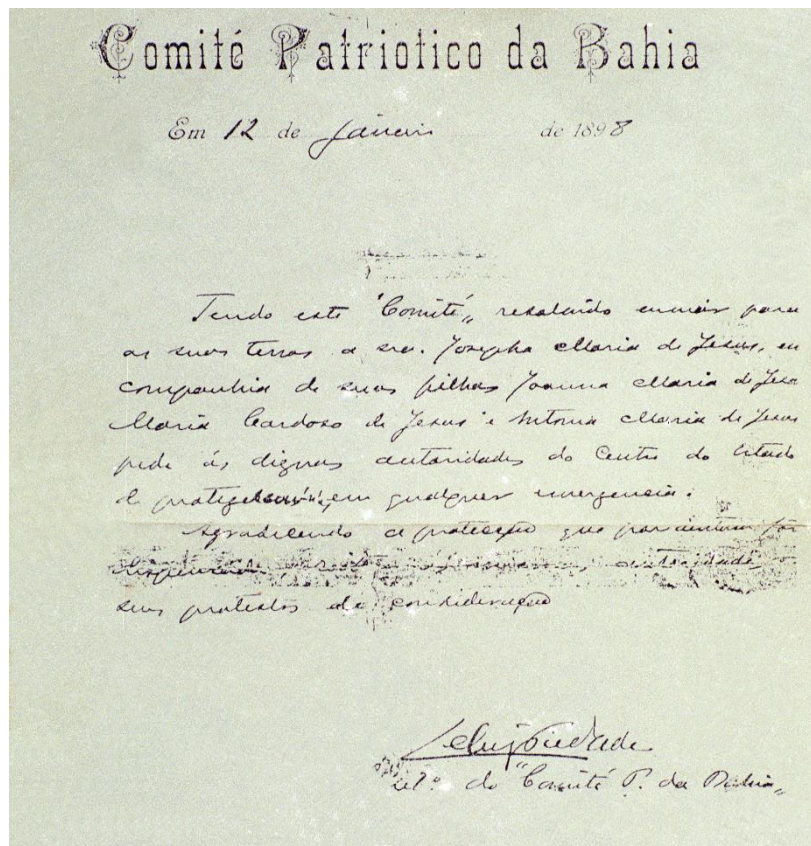 Comité Patriotico da Bahia
Em 12 de Janeiro de 1898
Tendo este "Comité" resolvido enviar para
as suas terras a sra. Josepha Maria de Jesus, em
companhia de suas filhas Joanna Maria de Jesus
Maria Cardoso de Jesus e Antonia Maria de Jesus
pede ás dignas autoridades do Centro do Estado
de em qualquer emergencia.
Agradecendo a protecção que por ventura for
autoridades
seus protestos de consideração
Lelis Piedade
do "Comité P. da Bahia"